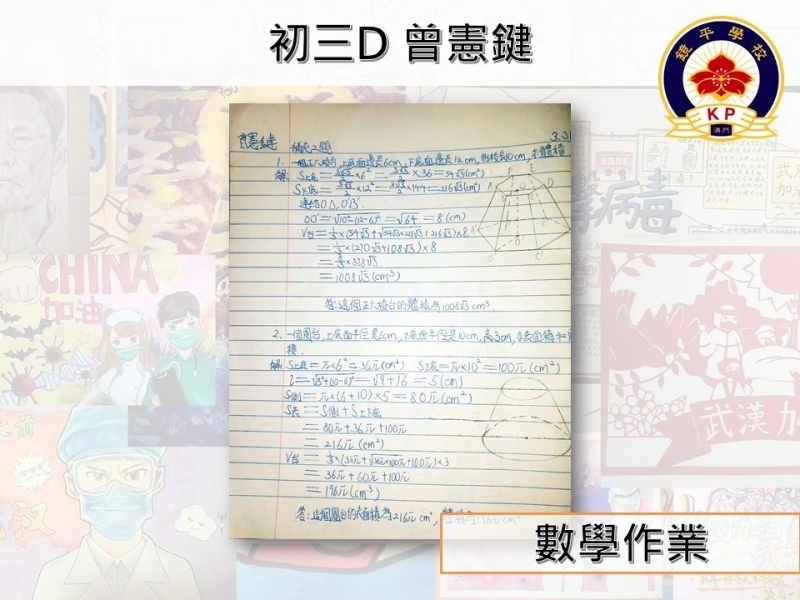 初三D 曾憲鍵
鏡平學校
KP
澳門
CHINA
加油
武漢加
病毒
曾憲鍵 補充2題
1. 一個正六棱台,上底面邊長6cm,下底面邊長12cm,側棱長10cm,求體積.
解: S上底=3√3/2×6²=3√3/2×36=54√3(cm²)
S下底=3√3/2×12²=3√3/2×144=216√3(cm²)
OO'=√10²-(12-6)²=√64=8(cm)
V台=1/3×(54√3+√54√3×216√3+216√3)×8
=1/3×(270√3+108√3)×8
=8/3×378√3
=1008√3(cm³)
答:這個正六棱台的體積為1008√3cm³.
2. 一個圓台,上底面半徑是6cm,下底面半徑是10cm,高3cm,求表面積和
積.
解: S上底=π×6²=36π(cm²) S下底=π×10²=100π(cm²)
l=√3²+(10-6)²=√9+16=5(cm)
S側=π×(6+10)×5=80π(cm²)
S表=S側+S上下底
=80π+36π+100π
=216π(cm²)
V台=1/3×(36π+√36π×100π+100π)×3
=36π+60π+100π
=196π(cm³)
答:這個圓台的表面積為216πcm²,體積為196πcm³
數學作業